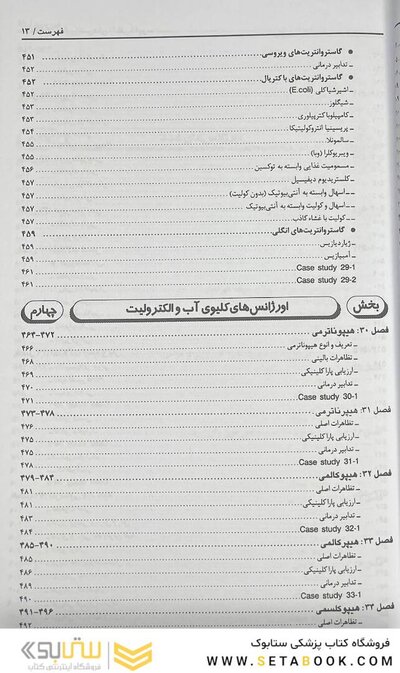 فهرست / ۱۳
● گاستروآنتریت‌های ویروسی ۴۵۱
ـ تدابیر درمانی ۴۵۲
● گاستروآنتریت‌های باکتریال ۴۵۲
ـ اشیرشیاکلی (E.coli) ۴۵۲
ـ شیگلوز ۴۵۳
ـ کامپیلوباکترپیلوری ۴۵۳
ـ یرسینیا انتروکولیتیکا ۴۵۴
ـ سالمونلا ۴۵۵
ـ ویبریوکلرا (وبا) ۴۵۵
ـ مسمومیت غذایی وابسته به توکسین ۴۵۶
ـ کلستریدیوم دیفیسیل ۴۵۷
ـ اسهال وابسته به آنتی‌بیوتیک (بدون کولیت) ۴۵۷
ـ اسهال و کولیت وابسته به آنتی‌بیوتیک ۴۵۷
ـ کولیت با غشاء کاذب ۴۵۷
● گاستروآنتریت‌های انگلی ۴۵۹
ـ ژیاردیازیس ۴۵۹
ـ آمیبیازیس ۴۵۹
Case study 29-1 ۴۶۱
Case study 29-2 ۴۶۱
بخش چهارم اورژانس‌های کلیوی آب و الکترولیت
فصل ۳۰: هیپوناترمی ۴۶۴-۴۷۲
ـ تعریف و انوع هیپوناترمی ۴۶۶
ـ تظاهرات بالینی ۴۶۸
ـ ارزیابی پاراکلینیکی ۴۶۹
ـ تدابیر درمانی ۴۷۰
Case study 30-1 ۴۷۱
فصل ۳۱: هیپرناترمی ۴۷۳-۴۷۸
ـ تظاهرات اصلی ۴۷۶
ـ ارزیابی پاراکلینیکی ۴۷۵
ـ تدابیر درمانی ۴۷۵
Case study 31-1 ۴۷۸
فصل ۳۲: هیپوکالمی ۴۷۹-۴۸۴
ـ تظاهرات اصلی ۴۸۱
ـ ارزیابی پاراکلینیکی ۴۸۱
ـ تدابیر درمانی ۴۸۳
Case study 32-1 ۴۸۴
فصل ۳۳: هیپرکالمی ۴۸۵-۴۹۰
ـ تظاهرات اصلی ۴۸۵
ـ ارزیابی پاراکلینیکی ۴۸۶
ـ تدابیر درمانی ۴۸۹
Case study 33-1 ۴۹۰
فصل ۳۴: هیپوکلسمی ۴۹۱-۴۹۶
ـ تظاهرات اصلی ۴۹۲
فروشگاه کتاب پزشکی ستابوک
WWW.SETABOOK.COM
ستابوک
فروشگاه اینترنتی کتاب